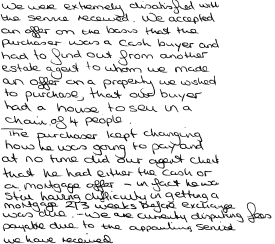 We were extremely dissatisfied with
the service received. We accepted
an offer on the basis that the
purchaser was a cash buyer and
had to find out from another
estate agent to whom we made
an offer on a property we wished
to purchase, that our buyer
had a house to sell in a
chain of 4 people.
The purchaser kept changing
how he was going to pay and
at no time did our agent check
that he had either the cash or
a mortgage offer - in fact he was
still having difficulty in getting a
mortgage 2/3 weeks before exchange
was due. - We are currently disputing fees
payable due to the appalling service
we have received